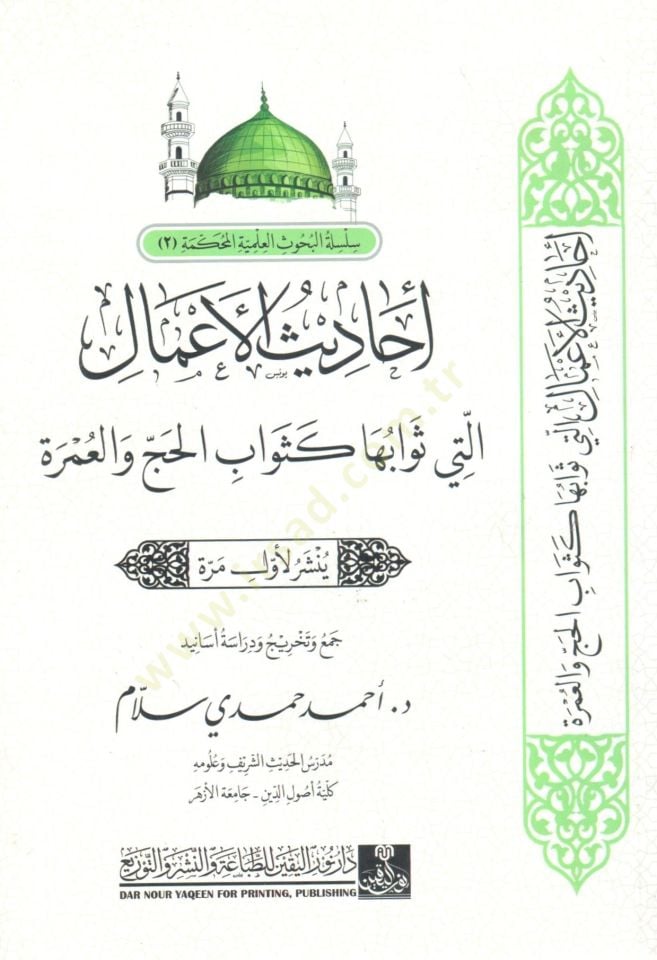 سِلْسِلَةُ البُحُوثِ العِلْمِيَّةِ المُحَكَّمَةِ (٢)
أَحَادِيثُ الأَعْمَالِ
الَّتِي ثَوَابُهَا كَثَوَابِ الحَجِّ وَالعُمْرَةِ
يُنْشَرُ لأَوَّلِ مَرَّة
جَمْعُ وَتَخْرِيجُ وَدِرَاسَةُ أَسَانِيد
د. أحمد حمدي سلّام
مُدَرِّسُ الحَدِيثِ الشَّرِيفِ وَعُلُومِهِ
كُلِّيَّةُ أُصُولِ الدِّينِ - جَامِعَةُ الأَزْهَرِ
دَارُ نُورِ اليَقِينِ لِلطِّبَاعَةِ وَالنَّشْرِ وَالتَّوْزِيعِ
DAR NOUR YAQEEN FOR PRINTING, PUBLISHING
نور اليقين
أَحَادِيثُ الأَعْمَالِ الَّتِي ثَوَابُهَا كَثَوَابِ الحَجِّ وَالعُمْرَةِ
www.irsad.com.tr